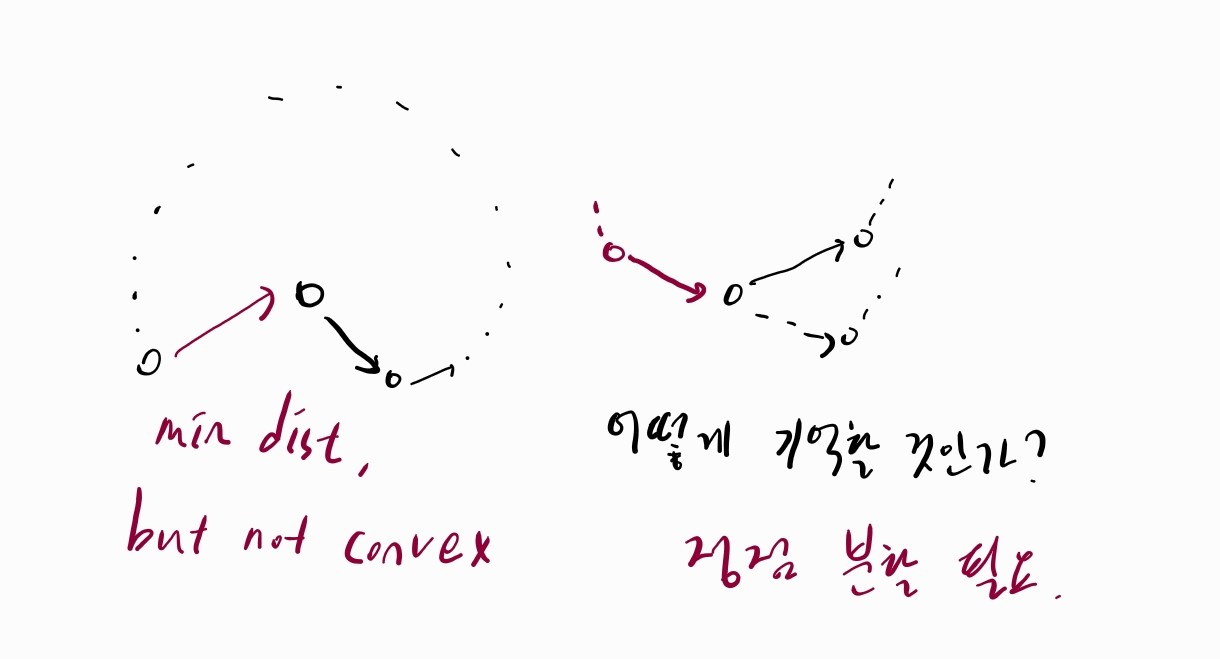 min dist,
but not convex
어떻게 기억할 것인가?
정점 분할 필요.